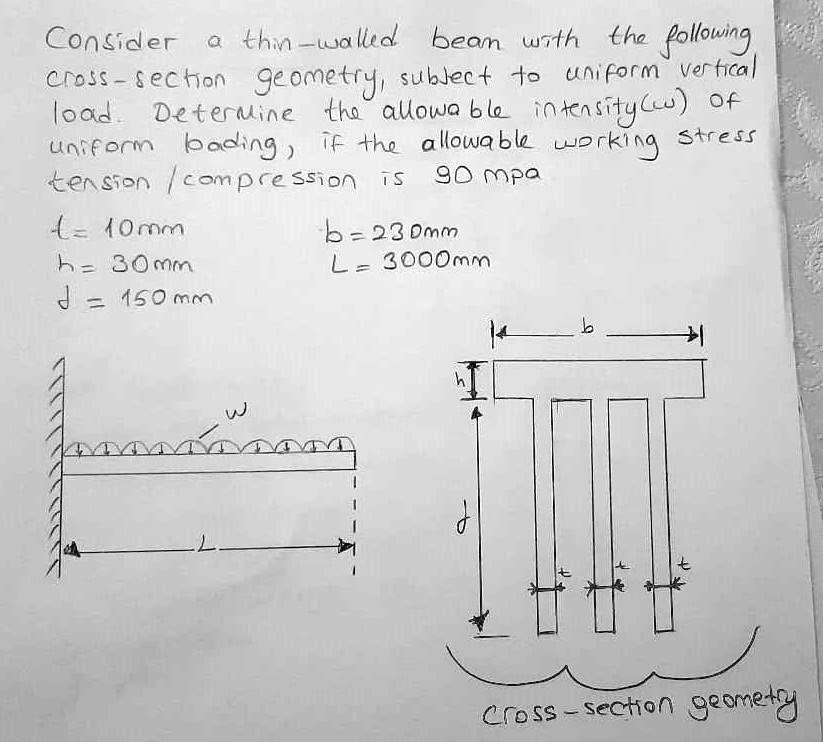 Consider a thin-walled beam with the following
cross-section geometry, subject to uniform vertical
load. Determine the allowable intensity(w) of
uniform loading, if the allowable working stress
tension /compression is 90 mpa
t= 10mm
b=230mm
h= 30mm
L= 3000mm
d = 150mm
b
h
w
d
L
t
t
t
cross-section geometry